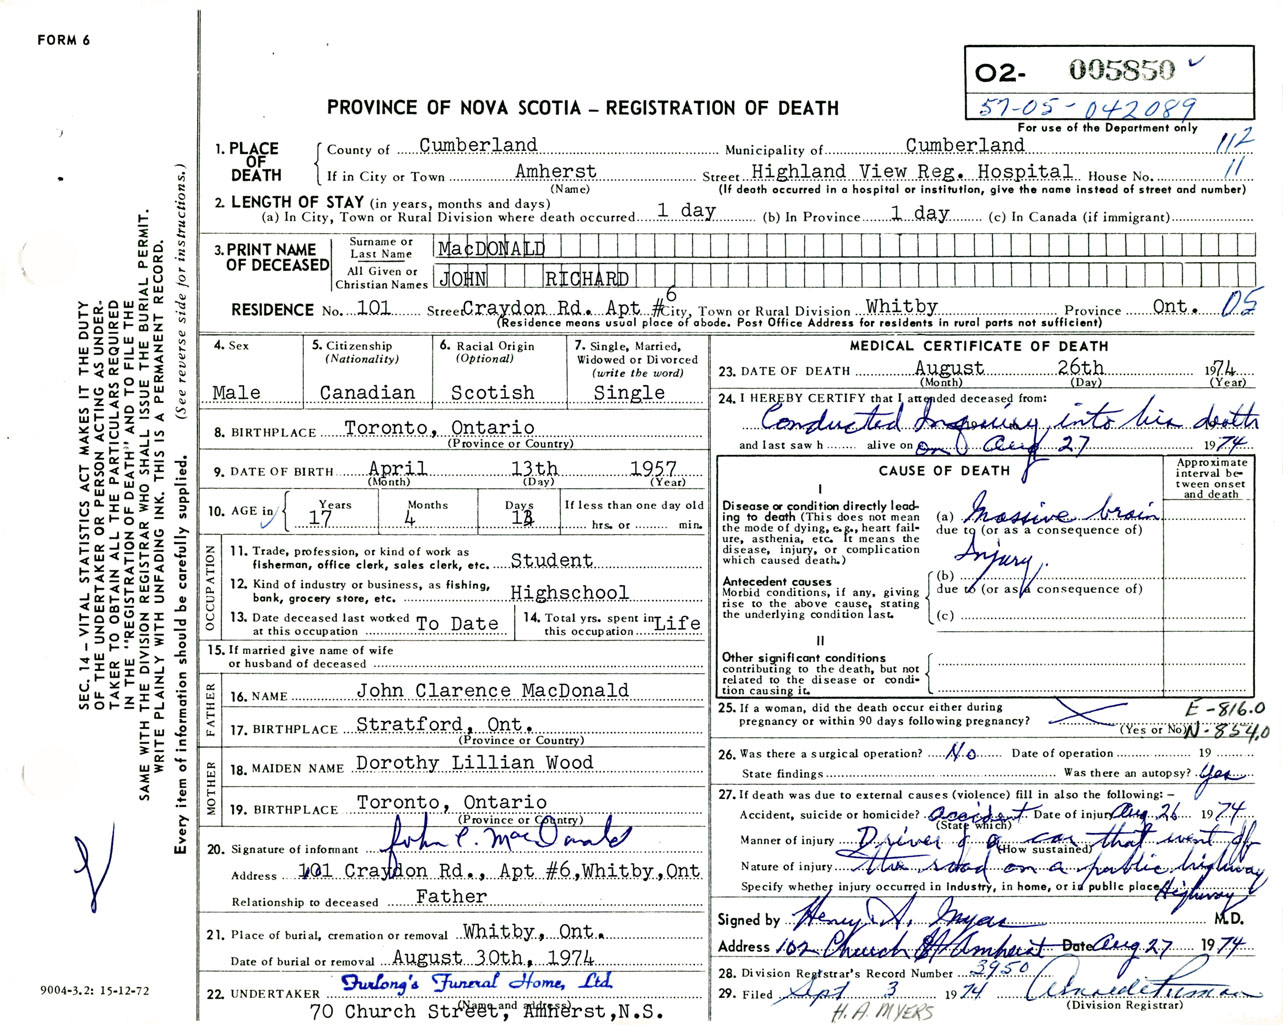 FORM 6
02- 005850
57-05-042089
For use of the Department only
PROVINCE OF NOVA SCOTIA – REGISTRATION OF DEATH
112
11
1. PLACE OF DEATH
County of Cumberland Municipality of Cumberland
If in City or Town Amherst Street Highland View Reg. Hospital House No.
(Name) (If death occurred in a hospital or institution, give the name instead of street and number)
2. LENGTH OF STAY (in years, months and days)
(a) In City, Town or Rural Division where death occurred 1 day (b) In Province 1 day (c) In Canada (if immigrant)
3. PRINT NAME OF DECEASED
Surname or Last Name MacDONALD
All Given or Christian Names JOHN RICHARD
RESIDENCE No. 101 Street Craydon Rd. Apt #6 City, Town or Rural Division Whitby Province Ont. 05
(Residence means usual place of abode. Post Office Address for residents in rural parts not sufficient)
4. Sex
Male
5. Citizenship
(Nationality)
Canadian
6. Racial Origin
(Optional)
Scotish
7. Single, Married,
Widowed or Divorced
(write the word)
Single
8. BIRTHPLACE Toronto, Ontario
(Province or Country)
9. DATE OF BIRTH April 13th 1957
(Month) (Day) (Year)
10. AGE in
Years 17
Months 4
Days 13
If less than one day old
hrs. or min.
OCCUPATION
11. Trade, profession, or kind of work as
fisherman, office clerk, sales clerk, etc. Student
12. Kind of industry or business, as fishing,
bank, grocery store, etc. Highschool
13. Date deceased last worked
at this occupation To Date
14. Total yrs. spent in
this occupation Life
15. If married give name of wife
or husband of deceased
FATHER
16. NAME John Clarence MacDonald
17. BIRTHPLACE Stratford, Ont.
(Province or Country)
MOTHER
18. MAIDEN NAME Dorothy Lillian Wood
19. BIRTHPLACE Toronto, Ontario
(Province or Country)
20. Signature of informant John C. MacDonald
Address 101 Craydon Rd., Apt #6, Whitby, Ont
Relationship to deceased Father
21. Place of burial, cremation or removal Whitby, Ont.
Date of burial or removal August 30th, 1974
22. UNDERTAKER Furlong's Funeral Home, Ltd.
(Name and address)
70 Church Street, Amherst, N.S.
MEDICAL CERTIFICATE OF DEATH
23. DATE OF DEATH August 26th 1974
(Month) (Day) (Year)
24. I HEREBY CERTIFY that I attended deceased from:
Conducted Inquiry into his death
and last saw h alive on on Aug 27 1974
CAUSE OF DEATH
Approximate interval between onset and death
I
Disease or condition directly leading to death (This does not mean the mode of dying, e.g., heart failure, asthenia, etc. It means the disease, injury, or complication which caused death.)
(a) Massive brain
due to (or as a consequence of)
Injury.
Antecedent causes
Morbid conditions, if any, giving rise to the above cause, stating the underlying condition last.
(b)
due to (or as a consequence of)
(c)
II
Other significant conditions
contributing to the death, but not related to the disease or condition causing it.
25. If a woman, did the death occur either during
pregnancy or within 90 days following pregnancy?
(Yes or No)
E-816.0
N-854.0
26. Was there a surgical operation? No Date of operation 19
State findings Was there an autopsy? Yes
27. If death was due to external causes (violence) fill in also the following: –
Accident, suicide or homicide? accident Date of injury Aug 26 1974
(State which)
Manner of injury Driver of a car that went off
(How sustained)
Nature of injury the road on a public highway
Specify whether injury occurred in Industry, in home, or in public place Highway
Signed by Henry A. Myers M.D.
Address 102 Church St Amherst Date Aug 27 1974
28. Division Registrar's Record Number 3950
29. Filed Sept 3 1974
(Division Registrar)
H. A. MYERS
SEC. 14 – VITAL STATISTICS ACT MAKES IT THE DUTY
OF THE UNDERTAKER OR PERSON ACTING AS UNDER-
TAKER TO OBTAIN ALL THE PARTICULARS REQUIRED
IN THE "REGISTRATION OF DEATH" AND TO FILE THE
SAME WITH THE DIVISION REGISTRAR WHO SHALL ISSUE THE BURIAL PERMIT.
WRITE PLAINLY WITH UNFADING INK. THIS IS A PERMANENT RECORD.
Every item of information should be carefully supplied. (See reverse side for instructions.)
9004-3.2: 15-12-72